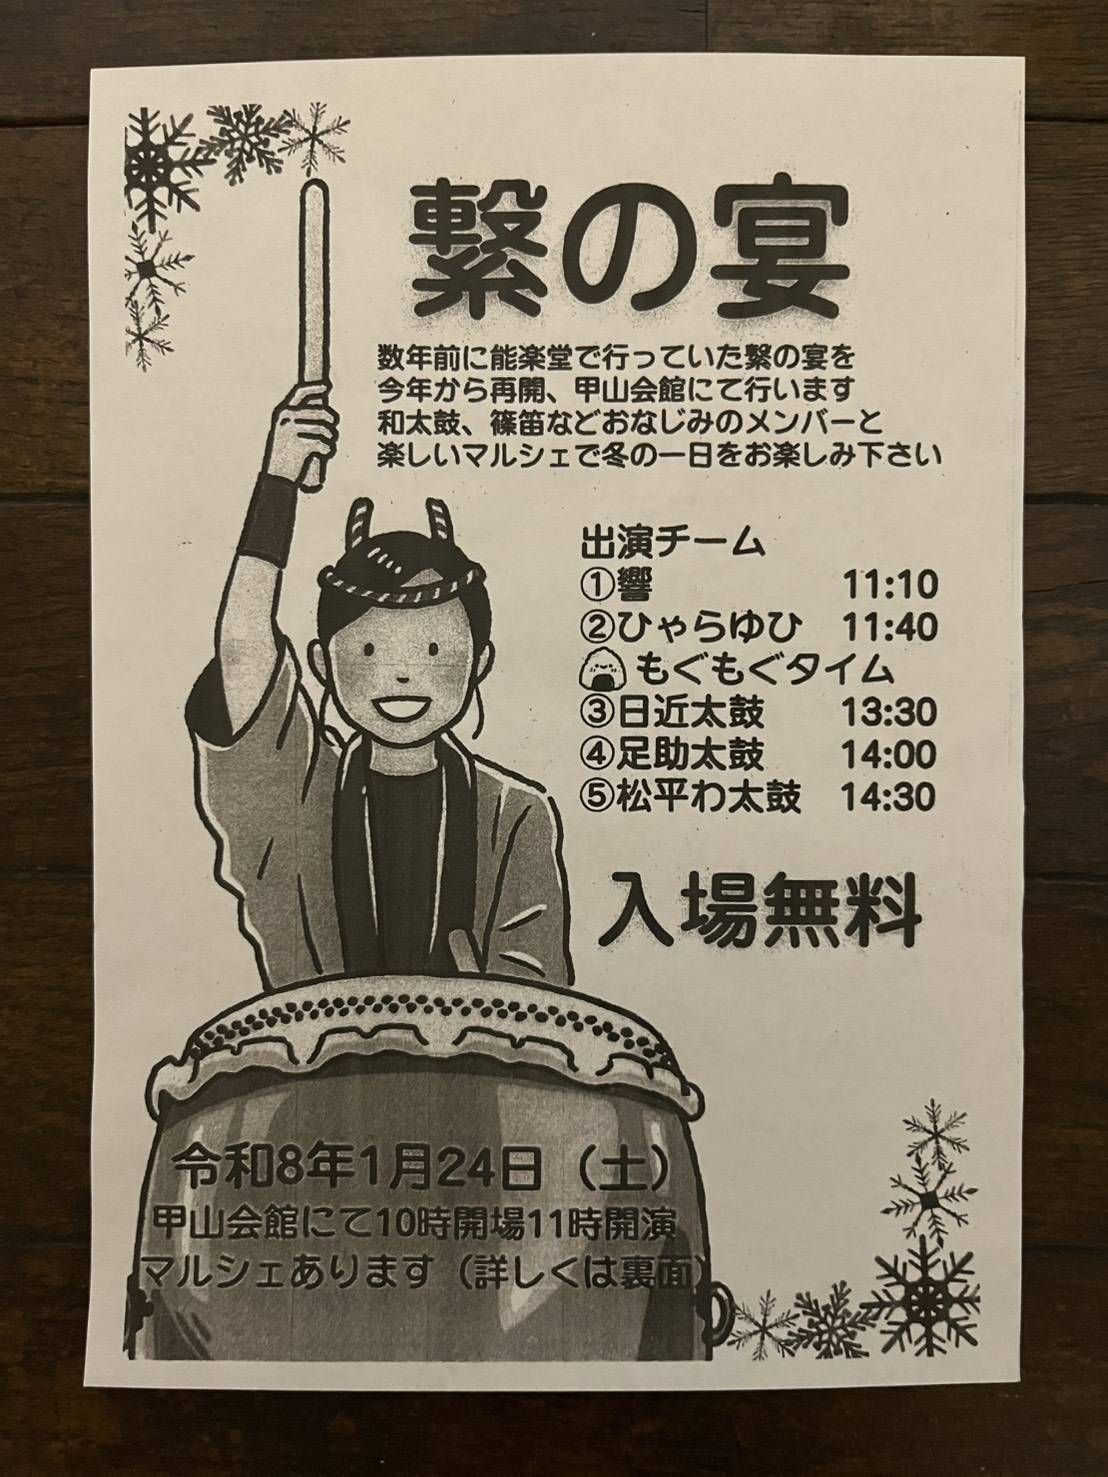 繋の宴
数年前に能楽堂で行っていた繋の宴を
今年から再開、甲山会館にて行います
和太鼓、篠笛などおなじみのメンバーと
楽しいマルシェで冬の一日をお楽しみ下さい
出演チーム
①響 11:10
②ひゃらゆひ 11:40
もぐもぐタイム
③日近太鼓 13:30
④足助太鼓 14:00
⑤松平わ太鼓 14:30
入場無料
令和8年1月24日（土）
甲山会館にて10時開場11時開演
マルシェあります（詳しくは裏面）